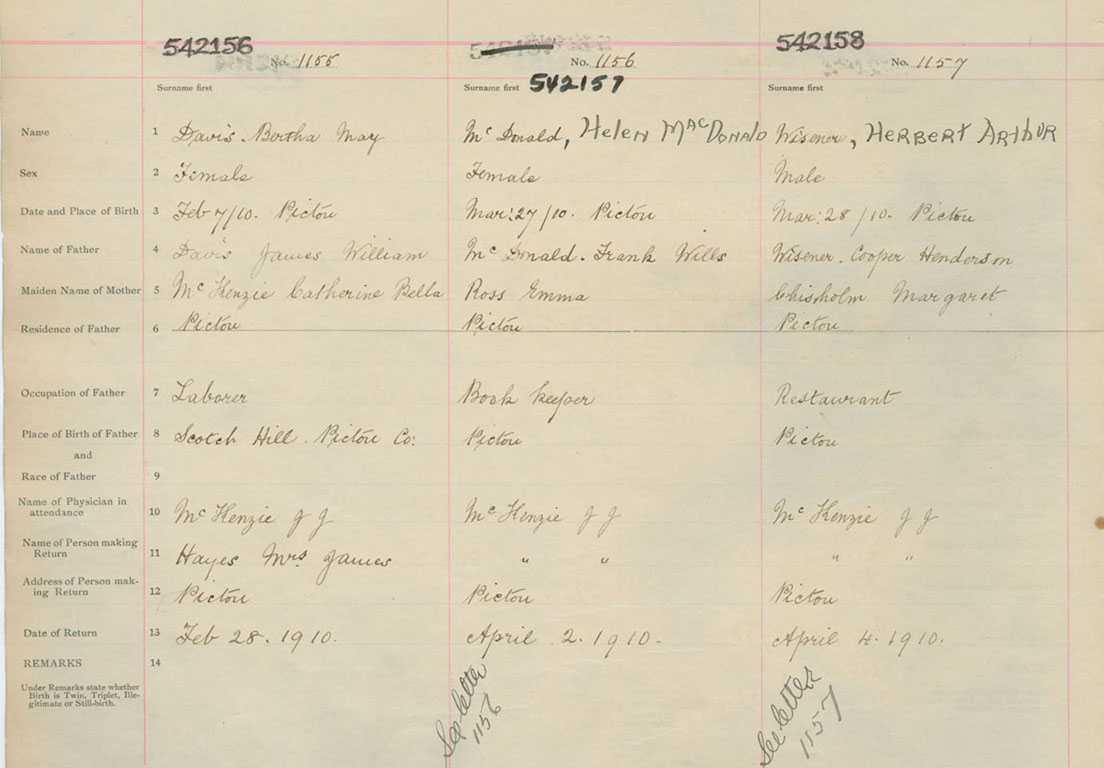 542156 542158
No. 1155 No. 1156 No. 1157
542157
Surname first Surname first Surname first
Name 1 Davis. Bertha May Mc Donald, Helen MacDonald Wisener, Herbert Arthur
Sex 2 Female Female Male
Date and Place of Birth 3 Feb 7/10. Pictou Mar: 27/10. Pictou Mar: 28/10. Pictou
Name of Father 4 Davis James William Mc Donald. Frank Wills Wisener. Cooper Henderson
Maiden Name of Mother 5 Mc Kenzie Catherine Bella Ross Emma Chisholm Margaret
Residence of Father 6 Pictou Pictou Pictou
Occupation of Father 7 Laborer Book keeper Restaurant
Place of Birth of Father 8 Scotch Hill. Pictou Co: Pictou Pictou
and
Race of Father 9
Name of Physician in
attendance 10 Mc Kenzie J J Mc Kenzie J J Mc Kenzie J J
Name of Person making
Return 11 Hayes Mrs James " " " "
Address of Person mak-
ing Return 12 Pictou Pictou Pictou
Date of Return 13 Feb 28. 1910. April 2. 1910. April 4. 1910.
REMARKS 14
Under Remarks state whether
Birth is Twin, Triplet, Ille-
gitimate or Still-birth.
See letter
1156
See letters
1157